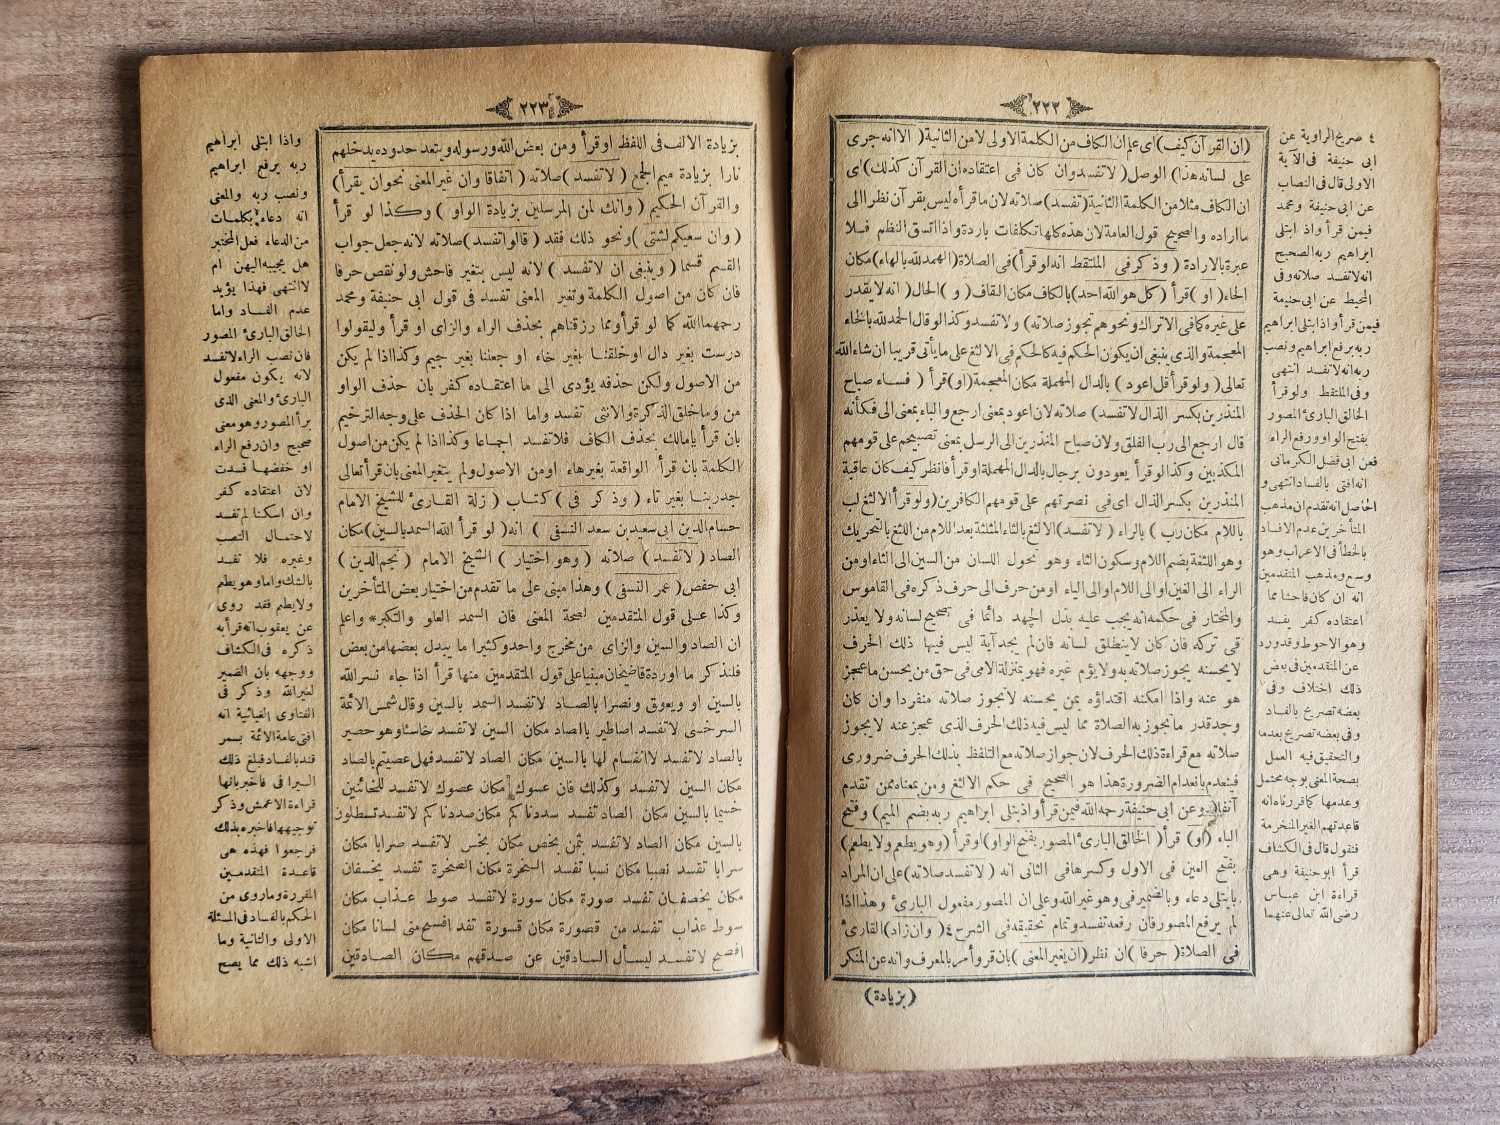 ٢٢٢
(ان القرآن كيف) اى علم ان الكاف من الكلمة الاولى لا من الثانية ( الا انه جرى
على لسانه هذا) الوصل ( لا تفسد وان كان فى اعتقاده ان القرآن كذلك) اى
ان الكاف مثلا من الكلمة الثانية (تفسد) صلاته لان ما قرأه ليس بقرآن نظرا الى
ما اراده والصحيح قول العامة لان هذه كلها تكلفات باردة واذا اتسق النظم فلا
عبرة بالارادة (وذكر فى الملتقط انه لو قرأ) فى الصلاة (الهمد لله بالهاء) مكان
الحاء (او) قرأ (كل هو الله احد) بالكاف مكان القاف (و) الحال (انه لا يقدر
على غيره كما فى الاتراك ونحوهم تجوز صلاته) ولا تفسد وكذا لو قال الخمد لله بالخاء
المعجمة والذى ينبغى ان يكون الحكم فيه كالحكم فى الالثغ على ما يأتى قريبا ان شاء الله
تعالى (ولو قرأ قل اعود) بالدال المهملة مكان المعجمة (او) قرأ (فساء صباح
المنذرين بكسر الذال لا تفسد) صلاته لان اعود بمعنى ارجع والباء بمعنى الى فكأنه
قال ارجع الى رب الفلق ولان صباح المنذرين الى الرسل بمعنى تصبيحهم على قومهم
المكذبين وكذا لو قرأ يعودون برجال بالدال المهملة او قرأ فانظر كيف كان عاقبة
المنذرين بكسر الذال اى فى نصرتهم على قومهم الكافرين (ولو قرأ الالثغ لب
باللام مكان رب) بالراء (لا تفسد) الالثغ بالثاء المثلثة بعد اللام من اللثغ بالتحريك
وهو اللثغة بضم اللام وسكون الثاء وهو تحول اللسان من السين الى الثاء او من
الراء الى الغين او الى اللام او الى الياء او من حرف الى حرف ذكره فى القاموس
والمختار فى حكمه انه يجب عليه بذل الجهد دائما فى تصحيح لسانه ولا يعذر
فى تركه فان كان لا ينطلق لسانه فان لم يجد آية ليس فيها ذلك الحرف
لا يحسنه يجوز صلاته به ولا يؤم غيره فهو بمنزلة الامى فى حق من يحسن ما عجز
هو عنه واذا امكنه اقتداؤه بمن يحسنه لا تجوز صلاته منفردا وان كان
وجد قدر ما تجوز به الصلاة مما ليس فيه ذلك الحرف الذى عجز عنه لا يجوز
صلاته مع قراءة ذلك الحرف لان جواز صلاته مع التلفظ بذلك الحرف ضرورى
فينعدم بانعدام الضرورة هذا هو الصحيح فى حكم الالثغ ومن بمعناه ممن تقدم
آنفا (وعن ابى حنيفة رحمه الله فيمن قرأ واذ ابتلى ابراهيم ربه بضم الميم) وفتح
الباء (او) قرأ (الخالق البارئ المصور بفتح الواو) او قرأ (وهو يطعم ولا يطعم)
بفتح العين فى الاول وكسرها فى الثانى انه (لا تفسد صلاته) على ان المراد
بابتلى دعاء وبالضمير فى وهو غير الله وعلى ان المصور مفعول البارئ وهذا اذا
لم يرفع المصور فان رفعه تفسد وتمام تحقيقه فى الشرح ٤ (وان زاد) القارئ
فى الصلاة (حرفا) ان نظر (ان يغير المعنى) بان قرأ وأمر بالمعرف وانه عن المنكر
(بزيادة)
٤ صريح الراوية عن
ابى حنيفة فى الآية
الاولى قال فى النصاب
عن ابى حنيفة ومحمد
فيمن قرأ واذ ابتلى
ابراهيم ربه الصحيح
انه لا تفسد صلاته وفى
المحيط عن ابى حنيفة
فيمن قرأ واذا بتلى ابراهيم
ربه برفع ابراهيم ونصب
ربه انه لا تفسد انتهى
وفى الملتقط ولو قرأ
الخالق البارئ المصور
بفتح الواو ورفع الراء
فعن ابى فضل الكرمانى
انه افتى بالفساد انتهى و
الحاصل انه تقدم ان مذهب
المتأخرين عدم الافساد
بالخطأ فى الاعراب وهو
وسع ومذهب المتقدمين
انه ان كان فاحشا مما
اعتقاده كفر يفسد
وهو الاحوط وقد ورد
عن المتقدمين فى بعض
ذلك اختلاف وفى
بعضه تصريح بالفساد
وفى بعضه تصريح بعدمها
والتحقيق فيه العمل
بصحة المعنى بوجه محتمل
وعدمها كما قررناه انه
قاعدتهم الغير المنخرمة
فنقول قال فى الكشاف
قرأ ابو حنيفة وهى
قراءة ابن عباس
رضى الله تعالى عنهما
٢٢٣
بزيادة الالف فى اللفظ او قرأ ومن بعض الله ورسوله ويتعد حدوده يدخلهم
نارا بزيادة ميم الجمع (لا تفسد) صلاته (اتفاقا وان غير المعنى نحو ان يقرأ)
والقرآن الحكيم (وانك لمن المرسلين بزيادة الواو) وكذا لو قرأ
(وان سعيكم لشتى) ونحو ذلك فقد (قالوا تفسد) صلاته لانه جعل جواب
القسم قسما (وينبغى ان لا تفسد) لانه ليس بتغير فاحش ولو نقص حرفا
فان كان من اصول الكلمة وتغير المعنى تفسد فى قول ابى حنيفة ومحمد
رحمهما الله كما لو قرأ ومما رزقناهم بحذف الراء والزاى او قرأ وليقولوا
درست بغير دال او خلقنا بغير خاء او جعلنا بغير جيم وكذا اذا لم يكن
من الاصول ولكن حذفه يؤدى الى ما اعتقاده كفر بان حذف الواو
من وما خلق الذكر والانثى تفسد واما اذا كان الحذف على وجه الترخيم
بان قرأ يامالك بحذف الكاف فلا تفسد اجماعا وكذا اذا لم يكن من اصول
الكلمة بان قرأ الواقعة بغير هاء او من الاصول ولم يتغير المعنى بان قرأ تعالى
جد ربنا بغير تاء (وذكر فى) كتاب (زلة القارئ للشيخ الامام
حسام الدين ابى سعيد بن سعد النسفى) انه (لو قرأ الله السمد بالسين) مكان
الصاد (لا تفسد) صلاته (وهو اختيار) الشيخ الامام (نجم الدين)
ابى حفص (عمر النسفى) وهذا مبنى على ما تقدم من اختيار بعض المتأخرين
وكذا على قول المتقدمين لصحة المعنى فان السمد العلو والتكبر * واعلم
ان الصاد والسين والزاى من مخرج واحد وكثيرا ما يبدل بعضها من بعض
فلنذكر ما اورده قاضيخان مبنيا على قول المتقدمين منها قرأ اذا جاء نسر الله
بالسين او ويعوق ونصرا بالصاد لا تفسد السمد بالسين وقال شمس الائمة
السرخسى لا تفسد اصاطير بالصاد مكان السين لا تفسد خاسئا وهو حصير
بالصاد لا تفسد لا انفسام لها بالسين مكان الصاد لا تفسد فهل عصيتم بالصاد
مكان السين لا تفسد وكذلك فان عسوك مكان عصوك لا تفسد للخائنين
خسيما بالسين مكان الصاد تفسد سددناكم مكان صددناكم لا تفسد تسطلون
بالسين مكان الصاد لا تفسد بثمن بخص مكان بخس لا تفسد صرابا مكان
سرابا تفسد نصبا مكان نسبا تفسد السخرة مكان الصخرة تفسد يخسفان
مكان يخصفان تفسد صورة مكان سورة لا تفسد صوط عذاب مكان
سوط عذاب تفسد من قصورة مكان قسورة تفد افسح منى لسانا مكان
افصح لا تفسد ليسأل السادقين عن صدقهم مكان الصادقين
واذا ابتلى ابراهيم
ربه برفع ابراهيم
ونصب ربه والمعنى
انه دعاء بكلمات
من الدعاء فعل المختبر
هل يجيبه اليهن ام
لا انتهى فهذا يؤيد
عدم الفساد واما
الخالق البارئ المصور
فان نصب الراء لا تفسد
لانه يكون مفعول
البارئ والمعنى الذى
برأ المصور وهو معنى
صحيح وان رفع الراء
او خفضها فسدت
لان اعتقاده كفر
وان اسكنا لم تفسد
لاحتمال النصب
وغيره فلا تفسد
بالشك واما وهو يطعم
ولا يطعم فقد روى
عن يعقوب انه قرأ به
ذكره فى الكشاف
ووجهه بان الضمير
لغير الله وذكر فى
الفتاوى الغياثية انه
افتى عامة الائمة بسمر
قند بالفساد فبلغ ذلك
السيرا فى فاخبر بانها
قراءة الاعمش وذكر
توجيهها فاخبره بذلك
فرجعوا فهذه هى
قاعدة المتقدمين
المقررة وما روى من
الحكم بالفساد فى المسئلة
الاولى والثانية وما
اشبه ذلك مما يصح